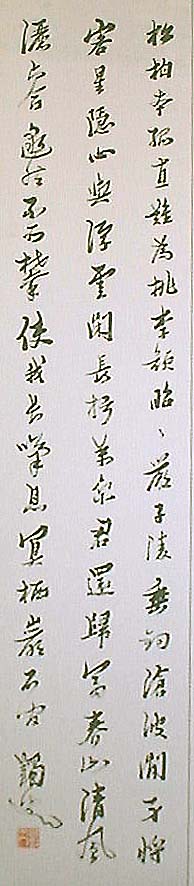 松柏本孤直難為桃李顏昭〻嚴子陵垂釣滄波間身將
客星隱心與浮雲閒長揖萬乘君還歸富春山清風
灑六合邈然不可攀使我長嘆息冥棲巖石間